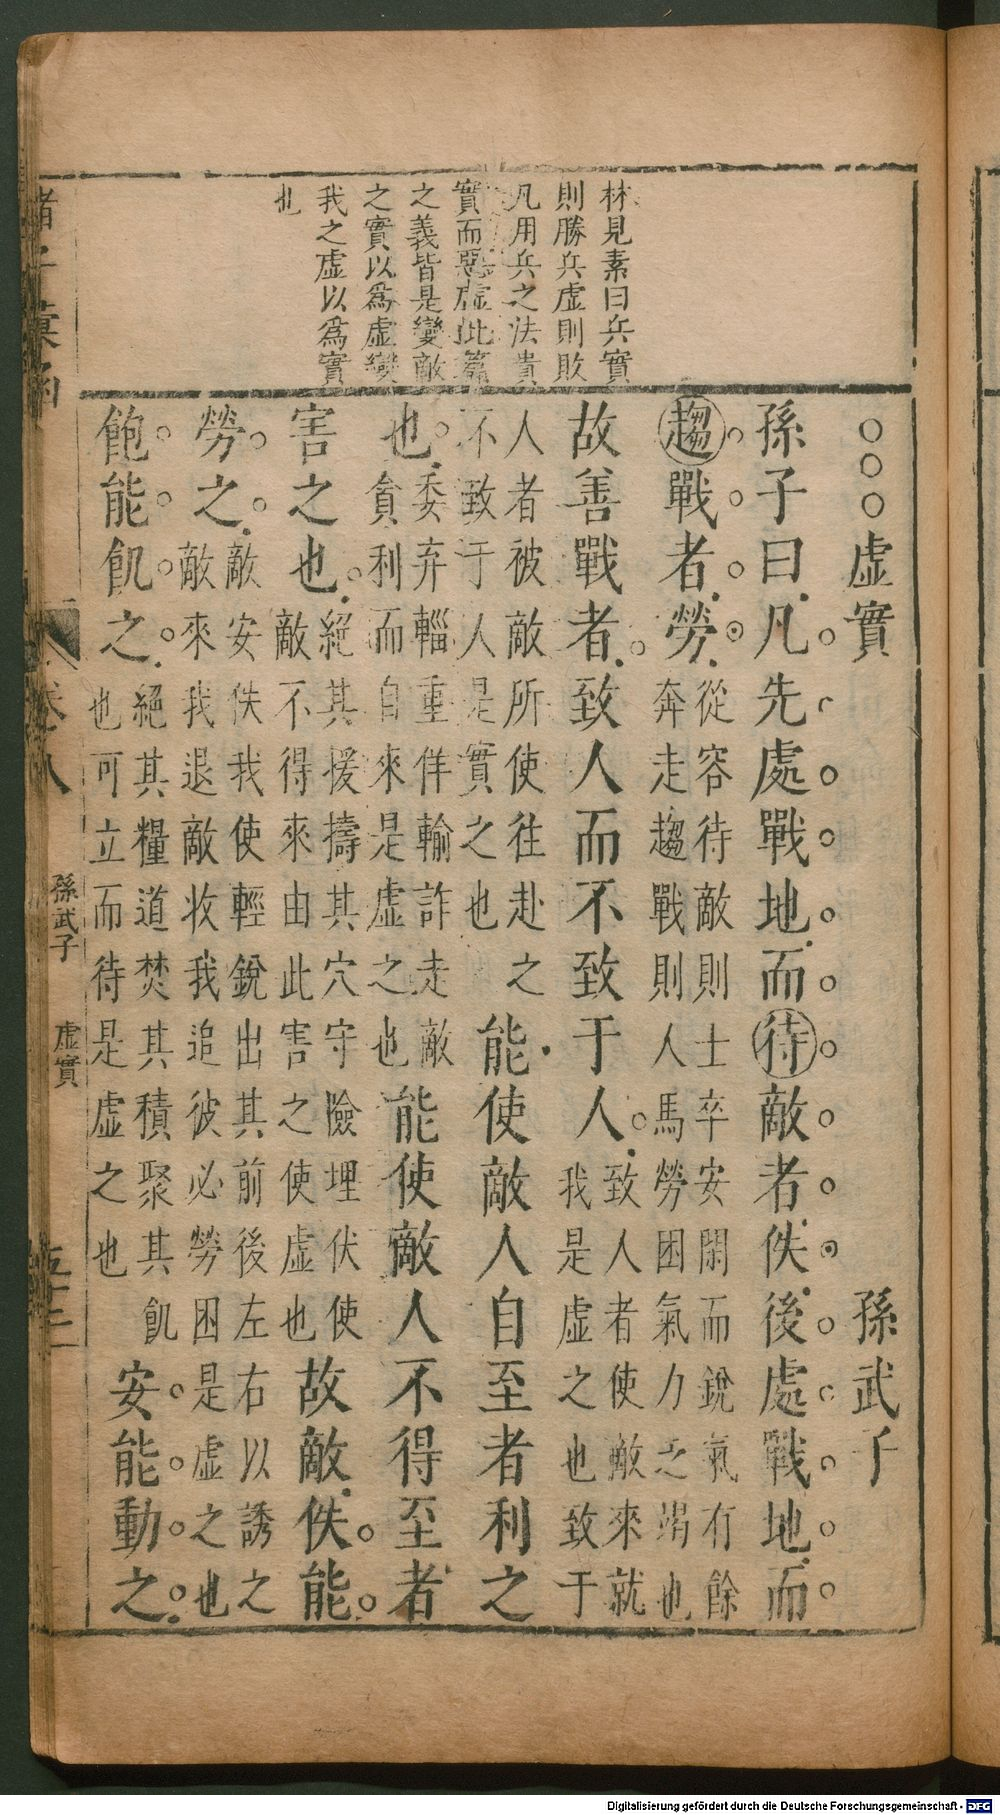 林見素曰兵實
則勝兵虛則敗
凡用兵之法貴
實而惡虛此篇
之義皆是變敵
之實以為虛變
我之虛以為實
也
○○○虛實 孫武子
孫子曰凡先處戰地而待敵者佚後處戰地而
趨戰者勞
從容待敵則士卒安閑而銳氣有餘
奔走趨戰則人馬勞困氣力乏竭也
故善戰者致人而不致于人
致人者使敵來就
我是虛之也致于
人者被敵所使往赴之
不致于人是實之也
能使敵人自至者利之
也
委弃輜重佯輸詐走敵
貪利而自來是虛之也
能使敵人不得至者
害之也
絕其援擣其穴守險埋伏使
敵不得來由此害之使虛也
故敵佚能
勞之
敵安佚我使輕銳出其前後左右以誘之
敵來我退敵收我追彼必勞困是虛之也
飽能飢之
絕其糧道焚其積聚其飢
也可立而待是虛之也
安能動之
卷八
孫武子
虛實
五十三
Digitalisierung gefördert durch die Deutsche Forschungsgemeinschaft - DFG